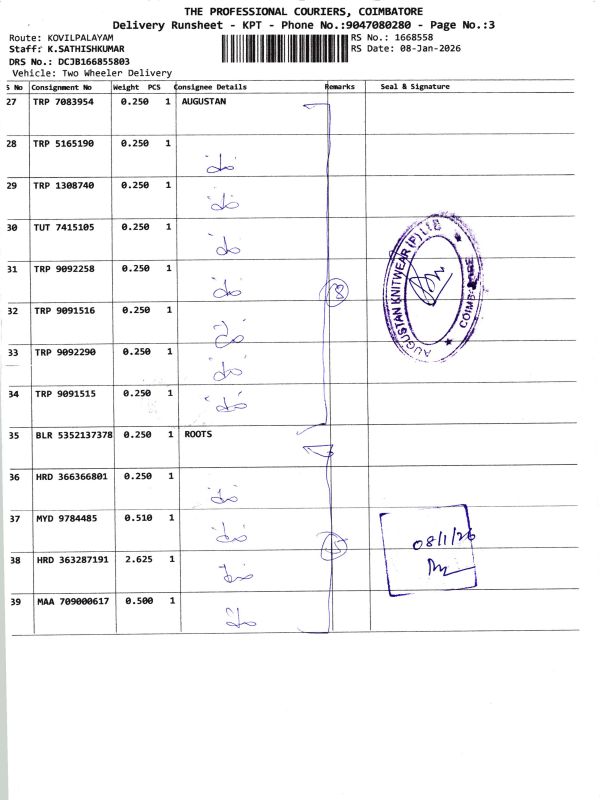 THE PROFESSIONAL COURIERS, COIMBATORE
Delivery Runsheet - KPT - Phone No.:9047080280 - Page No.:3
Route: KOVILPALAYAM
RS No.: 1668558
Staff: K.SATHISHKUMAR
RS Date: 08-Jan-2026
DRS No.: DCJB166855803
Vehicle: Two Wheeler Delivery
S No Consignment No Weight PCS Consignee Details Remarks Seal & Signature
27 TRP 7083954 0.250 1 AUGUSTAN
28 TRP 5165190 0.250 1
29 TRP 1308740 0.250 1
30 TUT 7415105 0.250 1
31 TRP 9092258 0.250 1
8
AUGUSTAN KNITWEAR (P) LTD
COIMBATORE
32 TRP 9091516 0.250 1
33 TRP 9092290 0.250 1
34 TRP 9091515 0.250 1
35 BLR 5352137378 0.250 1 ROOTS
36 HRD 366366801 0.250 1
37 MYD 9784485 0.510 1
5
08/1/26
38 HRD 363287191 2.625 1
39 MAA 709000617 0.500 1